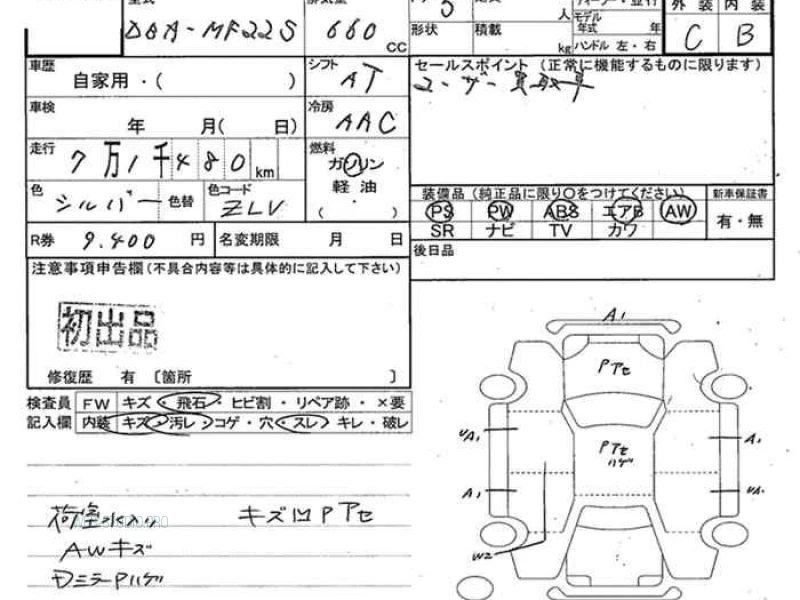 型式 排気量
DBA-MF22S 660 CC
5 人
形状 積載 kg
モデル年式 年
ハンドル 左・右
外装 内装
C B
車歴
自家用・( )
シフト AT
セールスポイント (正常に機能するものに限ります)
ユーザー買取車
車検 年 月( 日)
冷房 AAC
走行 7万1千480km
燃料 ガソリン
軽油
( ・ )
色 シルバー 色替 色コード ZLV
装備品 (純正品に限り○をつけてください) 新車保証書
PS PW ABS エアB AW 有・無
SR ナビ TV カワ
R券 9,400 円 名変期限 月 日
後日品
注意事項申告欄(不具合内容等は具体的に記入して下さい)
初出品
修復歴 有 〔箇所 〕
検査員 FW キズ・飛石・ヒビ割・リペア跡・×要
記入欄 内装 キズ・汚レ・コゲ・穴・スレ・キレ・破レ
荷室水入り キズ凹Pアセ
AWキズ
DミラーPハゲ
A1
Pアセ
UA1 Pアセ A1
ハゲ
A1 UA1
W2